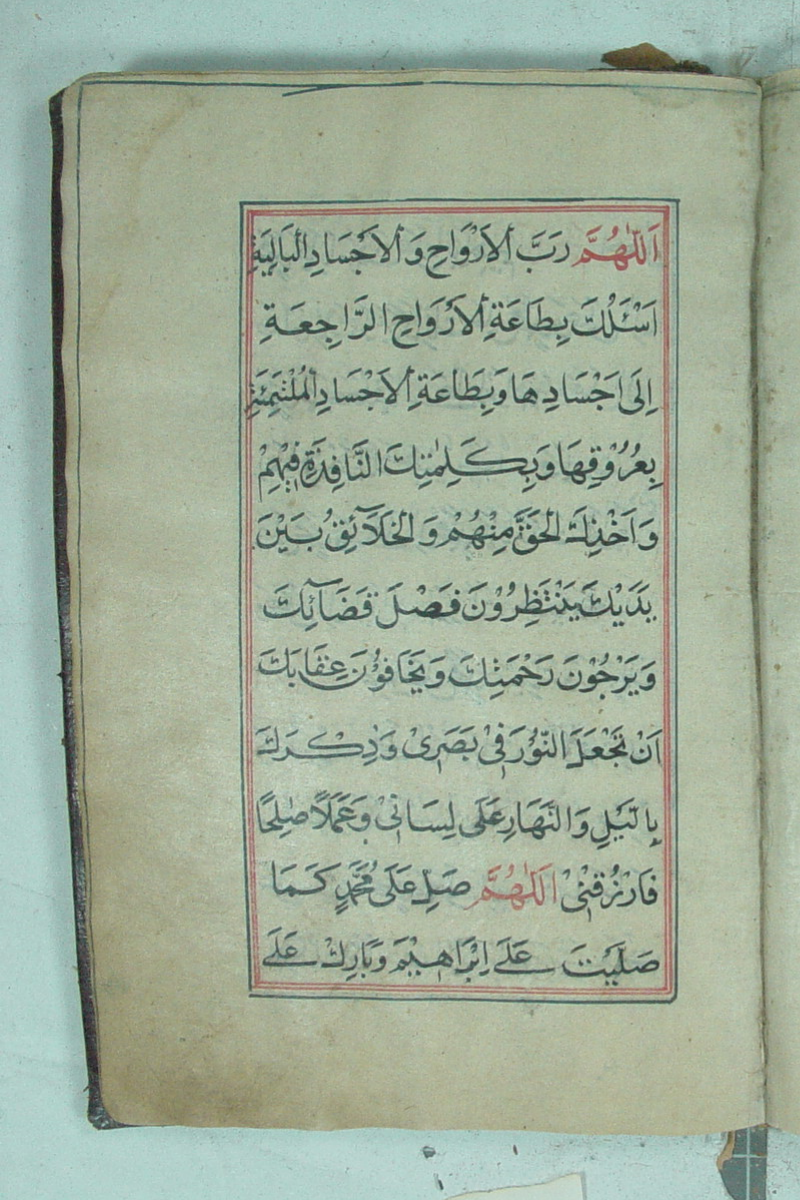 اَللّٰهُمَّ رَبَّ الْاَرْوَاحِ وَالْاَجْسَادِ الْبَالِيَةِ
اَسْئَلُكَ بِطَاعَةِ الْاَرْوَاحِ الرَّاجِعَةِ
اِلَى اَجْسَادِهَا وَبِطَاعَةِ الْاَجْسَادِ الْمُلْتَئِمَةِ
بِعُرُوْقِهَا وَبِكَلِمٰتِكَ النَّافِذَةِ فِيْهِمْ
وَاَخْذِكَ الْحَقَّ مِنْهُمْ وَالْخَلَآئِقُ بَيْنَ
يَدَيْكَ يَنْتَظِرُوْنَ فَصْلَ قَضَآئِكَ
وَيَرْجُوْنَ رَحْمَتِكَ وَيَخَافُوْنَ عِقَابَكَ
اَنْ تَجْعَلَ النُّوْرَ فِىْ بَصَرِىْ وَذِكْرَكَ
بِالَّيْلِ وَالنَّهَارِ عَلَى لِسَانِىْ وَعَمَلًا صٰلِحًا
فَارْزُقْنِىْ اَللّٰهُمَّ صَلِّ عَلَى مُحَمَّدٍ كَمَا
صَلَّيْتَ عَلَى اِبْرَاهِيْمَ وَبَارِكْ عَلَى